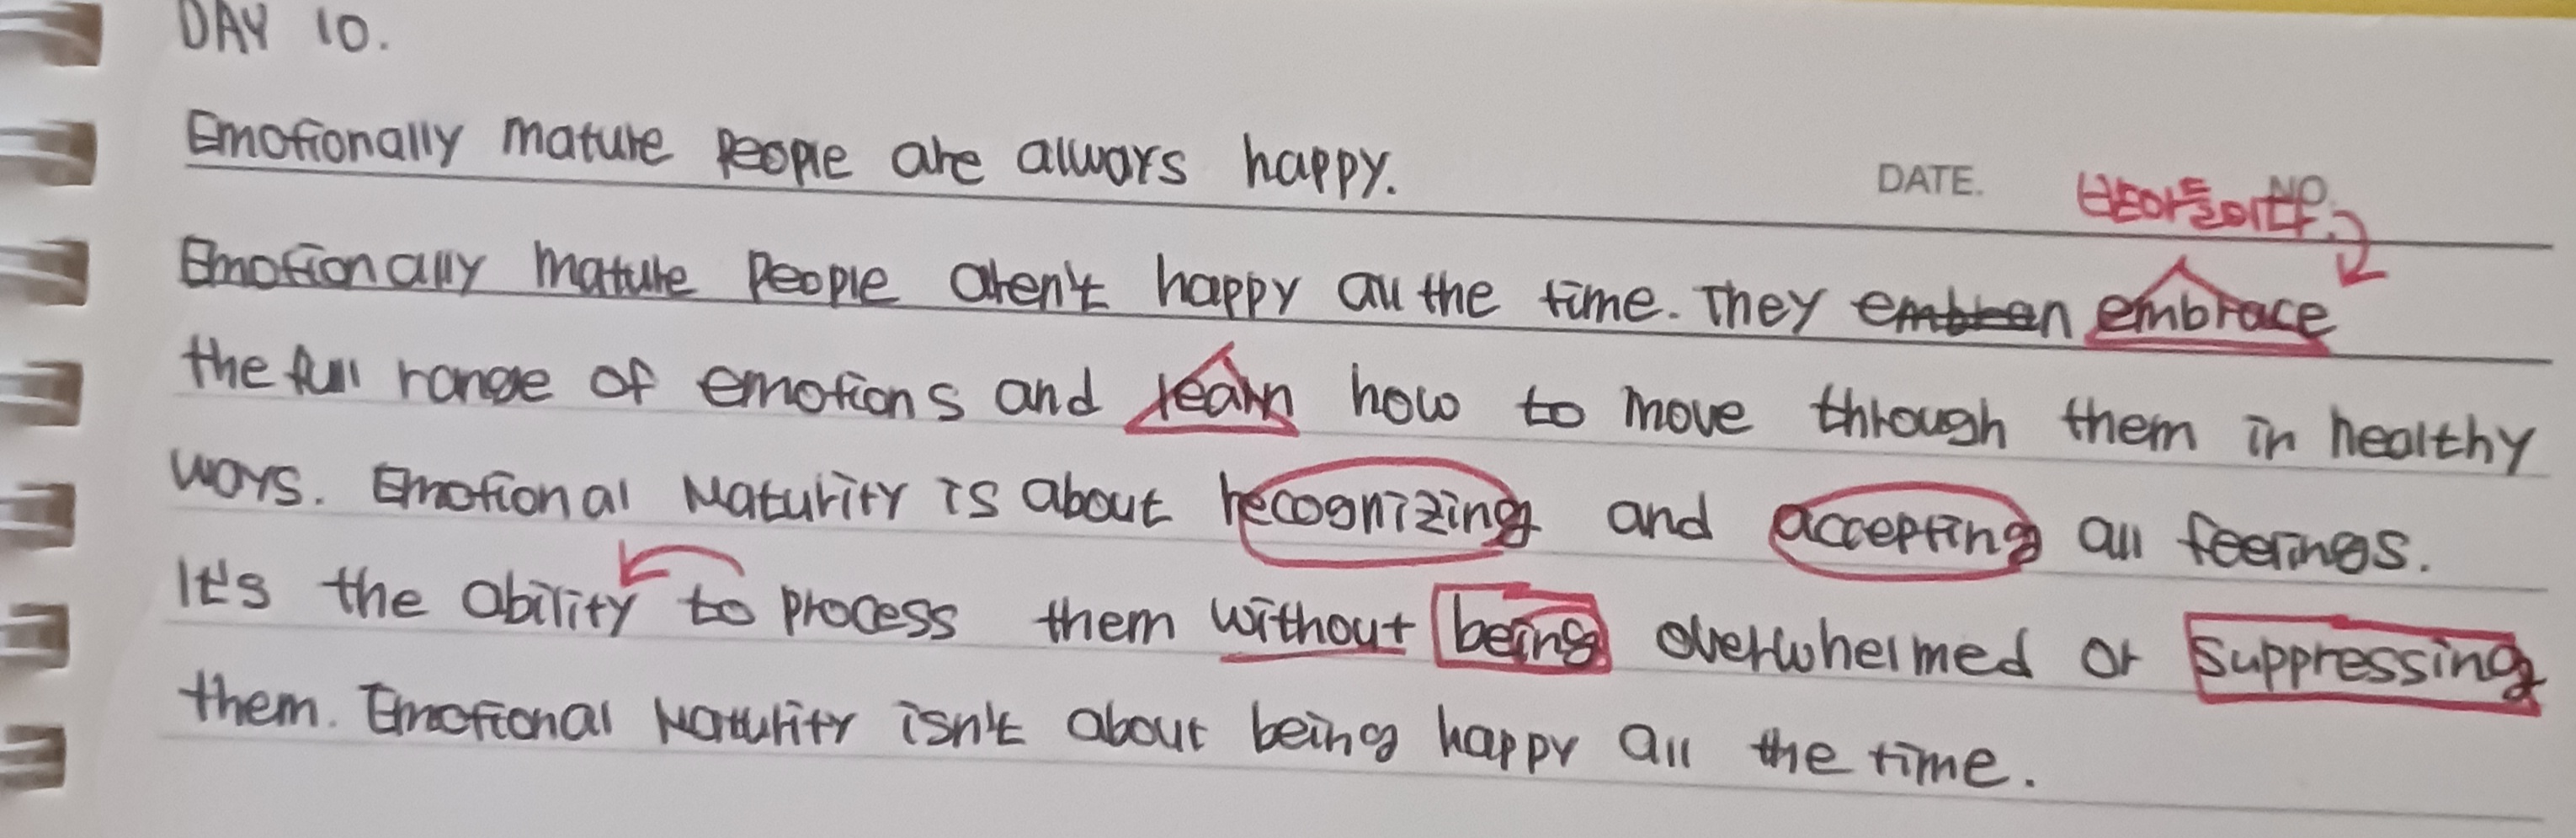 DAY 10.
Emotionally mature people are always happy.
DATE. NO.
받아들이다.
Emotionally mature people aren't happy all the time. They embrace
the full range of emotions and learn how to move through them in healthy
ways. Emotional Maturity is about recognizing and accepting all feelings.
It's the ability to process them without being overwhelmed or suppressing
them. Emotional Maturity isn't about being happy all the time.